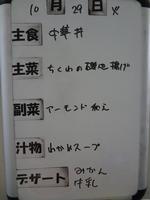 10月29日 火
主食 中華丼
主菜 ちくわの磯辺揚げ
副菜 アーモンド和え
汁物 わかめスープ
デザート みかん
牛乳